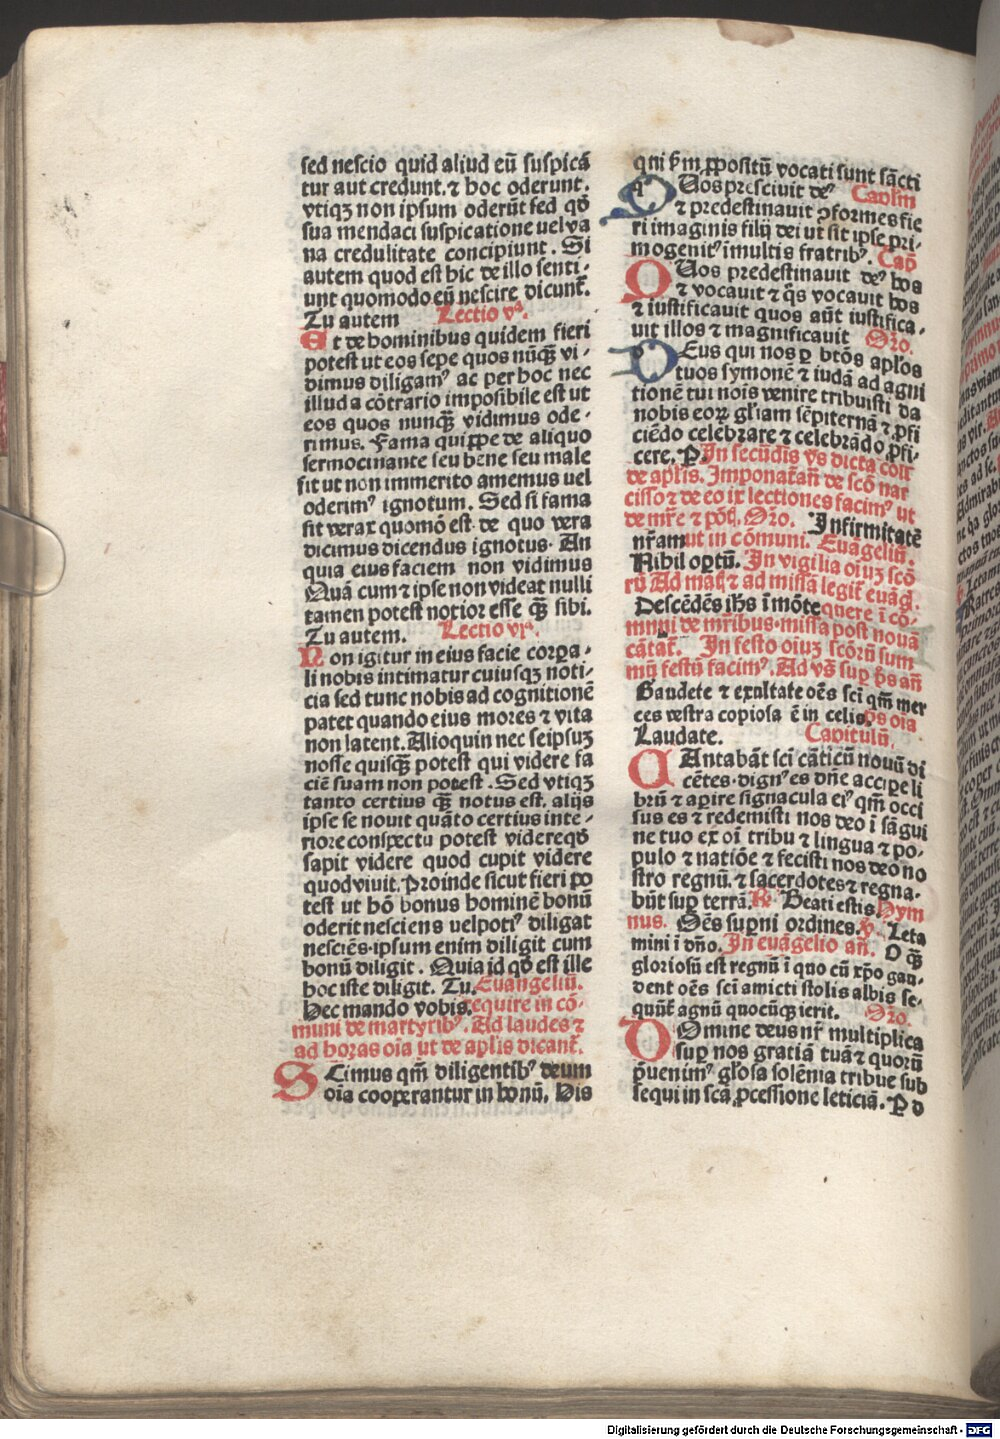 sed nescio quid aliud eū suspicā
tur aut credunt. ⁊ hoc oderunt.
vtiqꝫ non ipsum oderūt sed qđ
sua mendaci suspicatione uel va
na credulitate concipiunt. Si
autem quod est hic de illo senti-
unt quomodo eū nescire dicunt̄.
Tu autem Lectio vᵃ.
Et de hominibus quidem fieri
potest ut eos sepe quos nūqꝫ vi-
dimus diligamꝰ ac per hoc nec
illud a cōtrario imposibile est ut
eos quos nunqꝫ vidimus ode-
rimus. Fama quippe de aliquo
sermocinante seu bene seu male
fit ut non immerito amemus uel
oderimꝰ ignotum. Sed si fama
fit verax quomō est de quo vera
dicimus dicendus ignotus. An
quia eius faciem non vidimus
Quā cum ⁊ ipse non videat nulli
tamen potest notior esse qꝫ sibi.
Tu autem. Lectio vjᵃ.
Non igitur in eius facie corpa-
li nobis intimatur cuiusqꝫ noti-
cia sed tunc nobis ad cognitionē
patet quando eius mores ⁊ vita
non latent. Alioquin nec seipsuꝫ
nosse quisqꝫ potest qui videre fa
ciē suam non potest. Sed vtiqꝫ
tanto certius qꝫ notus est. alijs
ipse se nouit quāto certius inte-
riore conspectu potest videre qđ
sapit videre quod cupit videre
quod viuit. Proinde sicut fieri po
test ut hō bonus hominē bonū
oderit nesciens uel potiꝰ diligat
nesciēs. ipsum enim diligit cum
bonū diligit. Quia id qđ est ille
hoc iste diligit. Tu. Euangeliū.
Hec mando vobis. require in cō-
muni de martyribꝰ. Ad laudes ⁊
ad horas oīa ut de aplis dicant̄.
SCimus qm̄ diligentibꝰ deum
oīa cooperantur in bonū. His
qui ẜm ꝓpositū vocati sunt sācti
QUos presciuit deꝰ Caplm
⁊ predestinauit ꝯformes fie
ri imaginis filij dei ut sit ipse pri-
mogenitꝰ in multis fratribꝰ. Cap̄
QUos predestinauit deꝰ hos
⁊ vocauit ⁊ q̄s vocauit hos
⁊ iustificauit quos aūt iustifica-
uit illos ⁊ magnificauit Orō.
DEus qui nos ꝑ btōs aplos
tuos symonē ⁊ iudā ad agni
tionē tui noīs venire tribuisti da
nobis eoꝝ gl̄iam sēpiternā ⁊ ꝓfi
ciēdo celebrare ⁊ celebrādo ꝓfi-
cere. P. In secūdis vs̄ dicta coll
de aplis. Imponat̄ an̄ de scō nar
cisso ⁊ de eo ix lectiones facimꝰ ut
de mr̄e ⁊ pōt̄. Orō. Infirmitatē
nr̄am ut in cōmuni. Euāgeliū.
Nihil opertū. In vigilia oīuꝫ scō
rū Ad mat̄ ⁊ ad missā legit̄ euāḡ.
Descēdēs ihs̄ ī mōte quere ī cō-
muni de mr̄ibus. missa post nouā
cātat̄. In festo oīuꝫ scōrū sum
mū festū facimꝰ. Ad vs̄ suꝑ p̄s an̄
Gaudete ⁊ exultate oēs sci qm̄ mer
ces vestra copiosa ē in celis. p̄s oīa
Laudate. Capitulū.
CAntabāt sci cāticū nouū di
cētes. dignꝰ es dn̄e accipe li
brū ⁊ aperire signacula eiꝰ qm̄ occi
sus es ⁊ redemisti nos deo ī sāgui
ne tuo ex oī tribu ⁊ lingua ⁊ po-
pulo ⁊ natiōe ⁊ fecisti nos deo no
stro regnū. ⁊ sacerdotes ⁊ regna-
būt suꝑ terrā. R̄. Beati estis. Hym
nus. Oēs suꝑni ordines. ℣. Leta
mini ī dn̄o. In euāgelio an̄. O qꝫ
gloriosū est regnū ī quo cū xp̄o gau-
dent oēs sci amicti stolis albis se-
qunt̄ agnū quocūqꝫ ierit. Orō.
DOmine deus nr̄ multiplica
suꝑ nos gratiā tuā ⁊ quorū
p̄uenimꝰ gl̄osa solēnia tribue sub
sequi in sca ꝓcessione leticiā. P d
Digitalisierung gefördert durch die Deutsche Forschungsgemeinschaft - DFG